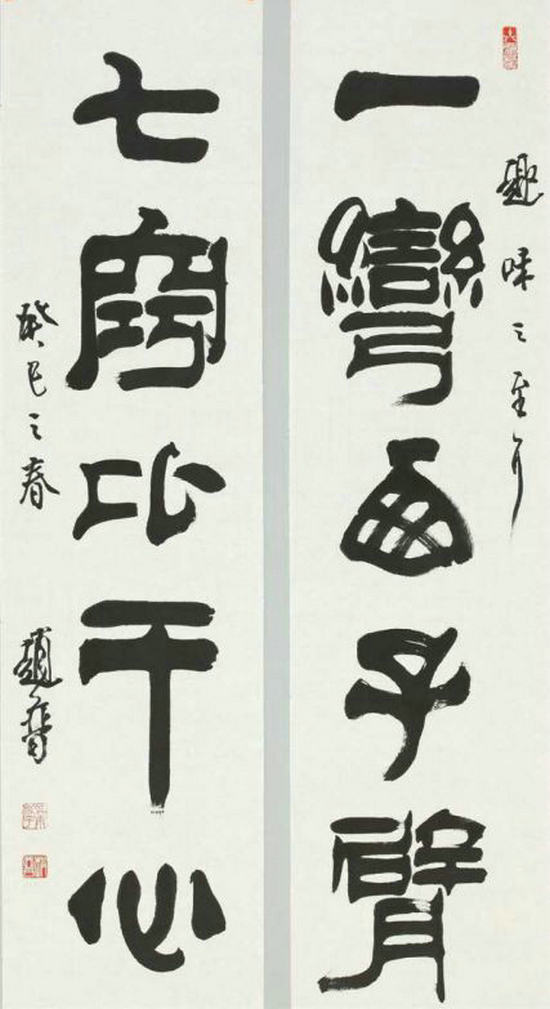 趣味之至
一彎西子臂
七窍比干心
癸巳之春